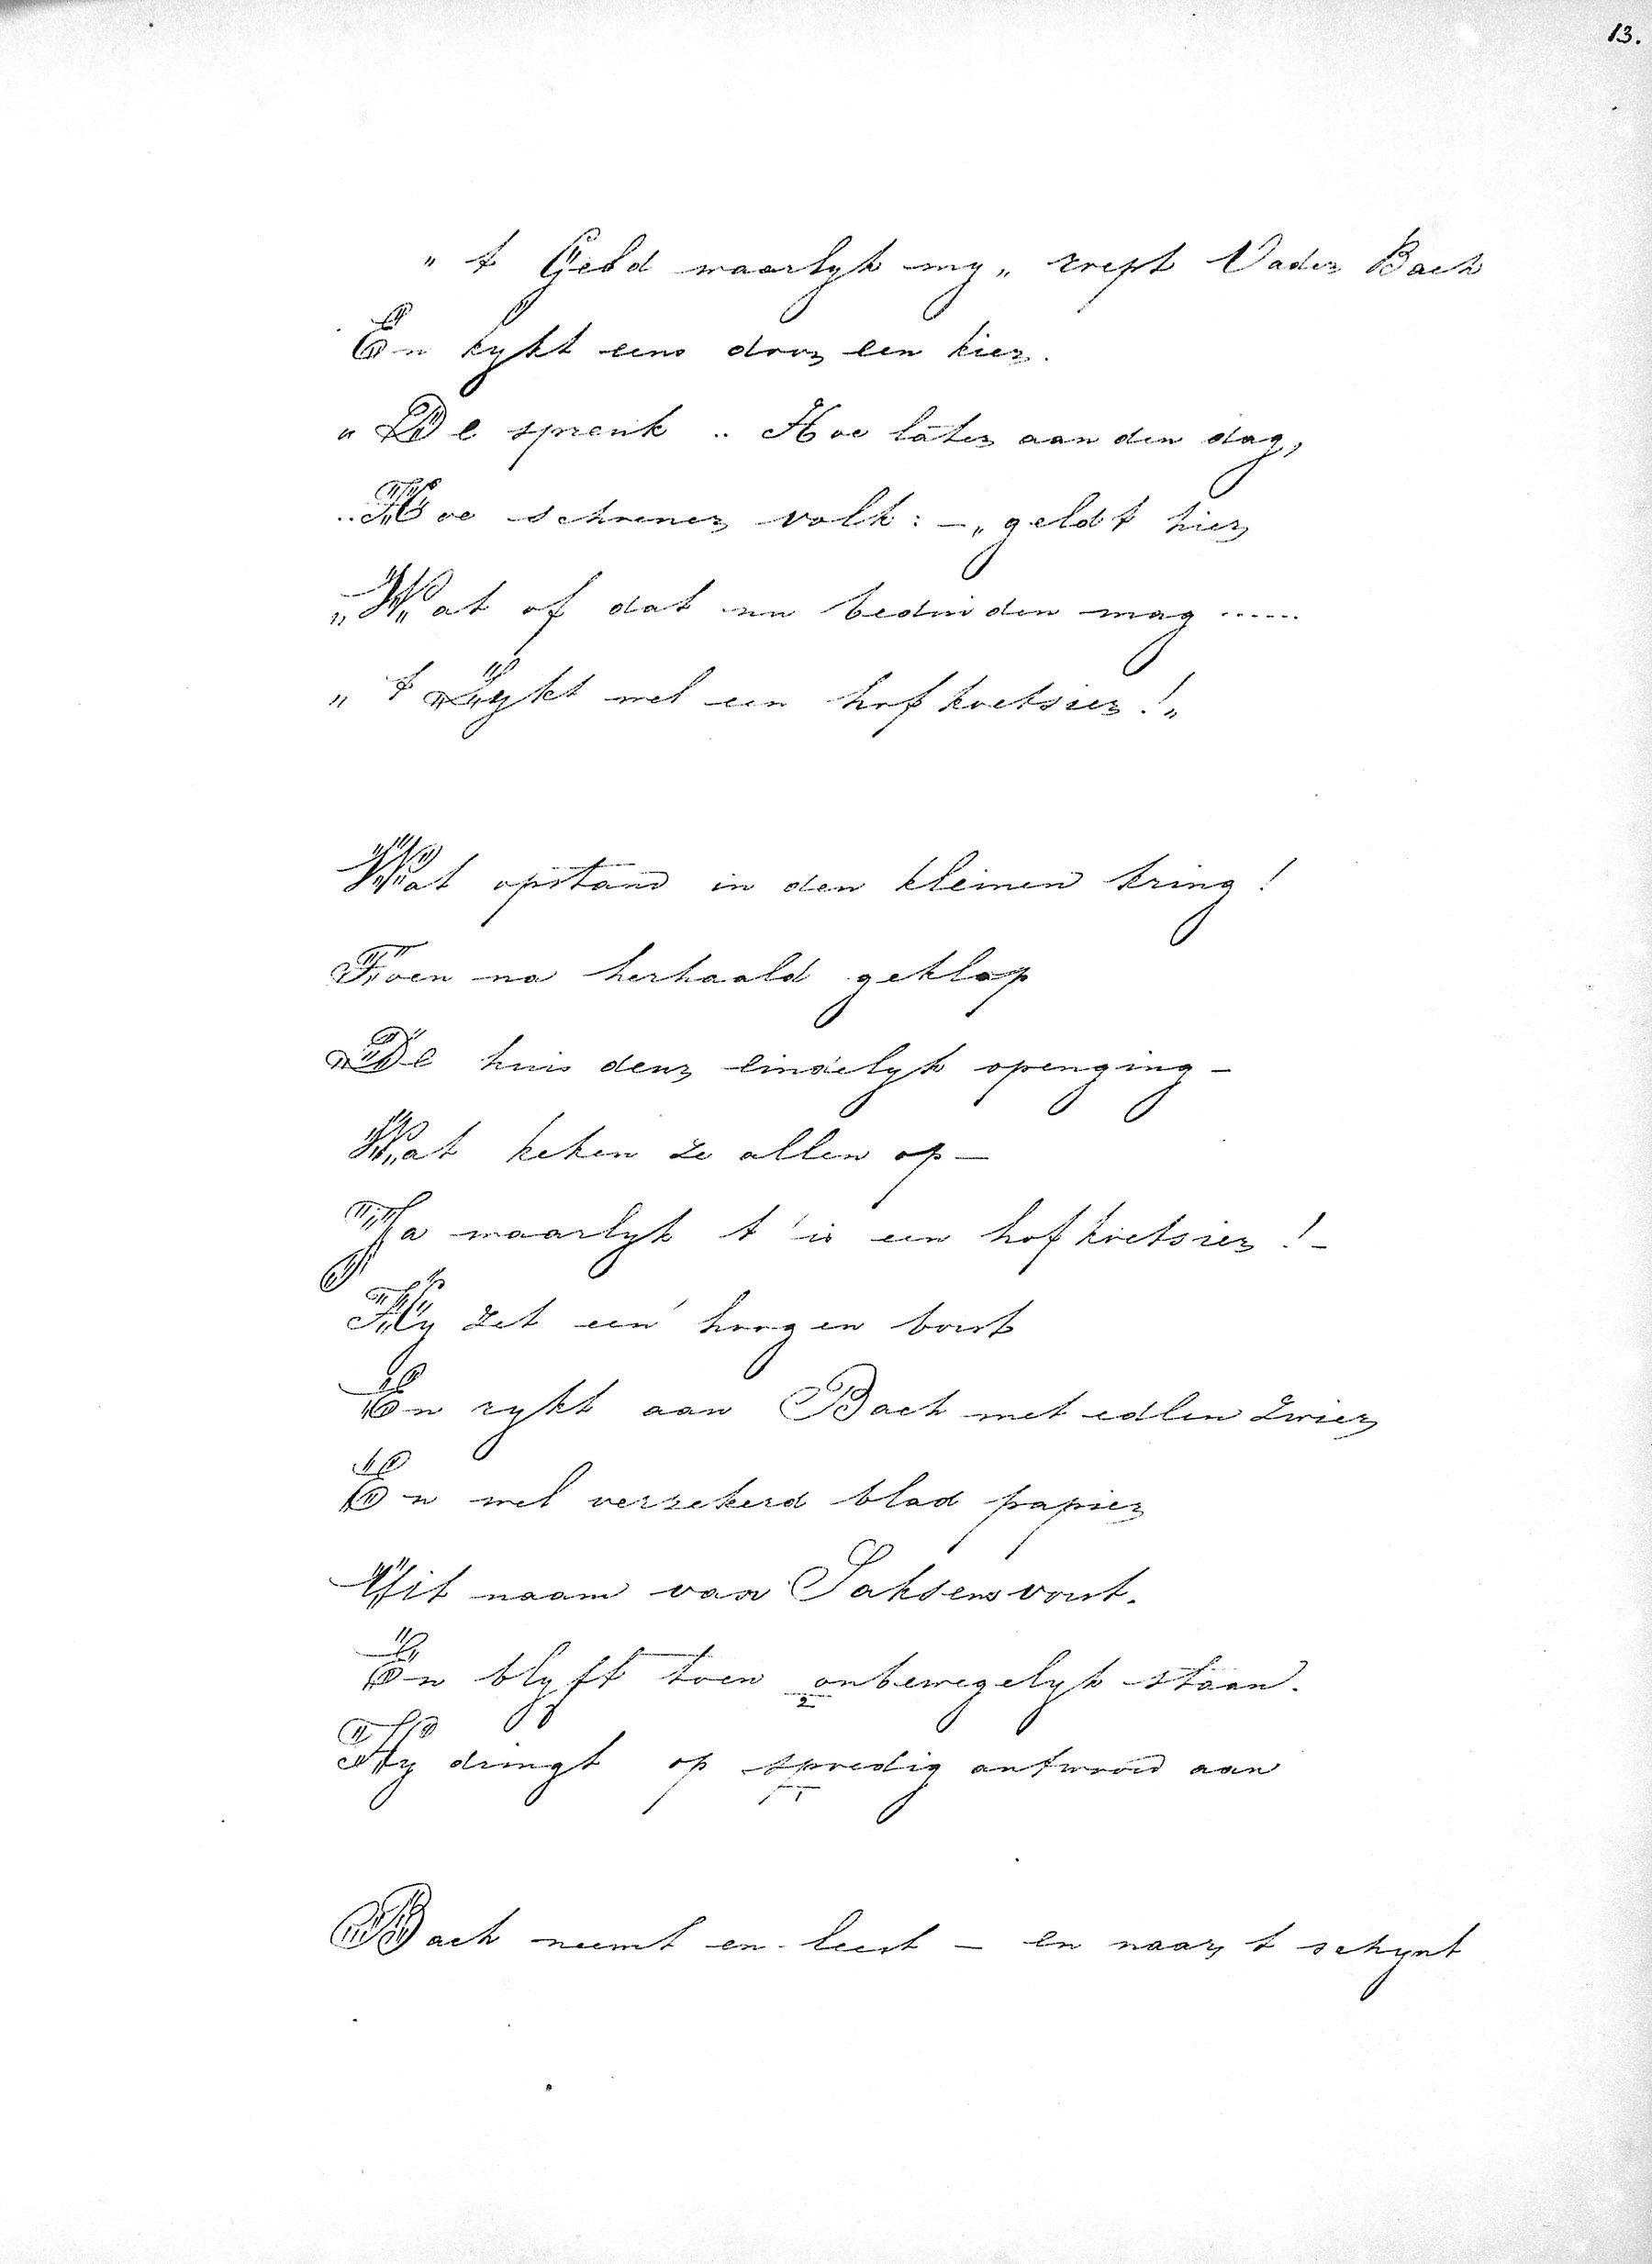 13.
" t Geld waarlyk my „ roept Vader Bach
En kykt eens door een kier.
„ De spreuk .. Hoe later aan den dag,
„ Hoe schooner volk: – „ geldt hier
„ Wat of dat nu beduiden mag ......
„ t Lykt wel een hofkoetsier! „
Wat opstand in den kleinen kring!
Toen na herhaald geklop
De huis deur eindelyk openging –
Wat keken ze allen op –
Ja waarlyk t' is een hofkoetsier! –
Hy zet een' hoogen borst
En rykt aan Bach met edlen zwier
En wel verzekerd blad papier
Uit naam van Saksens vorst.
En blyft toen onbewegelyk staan.
2
Hy dringt op spoedig antwoord aan
1
Bach neemt en leest – en naar t schynt